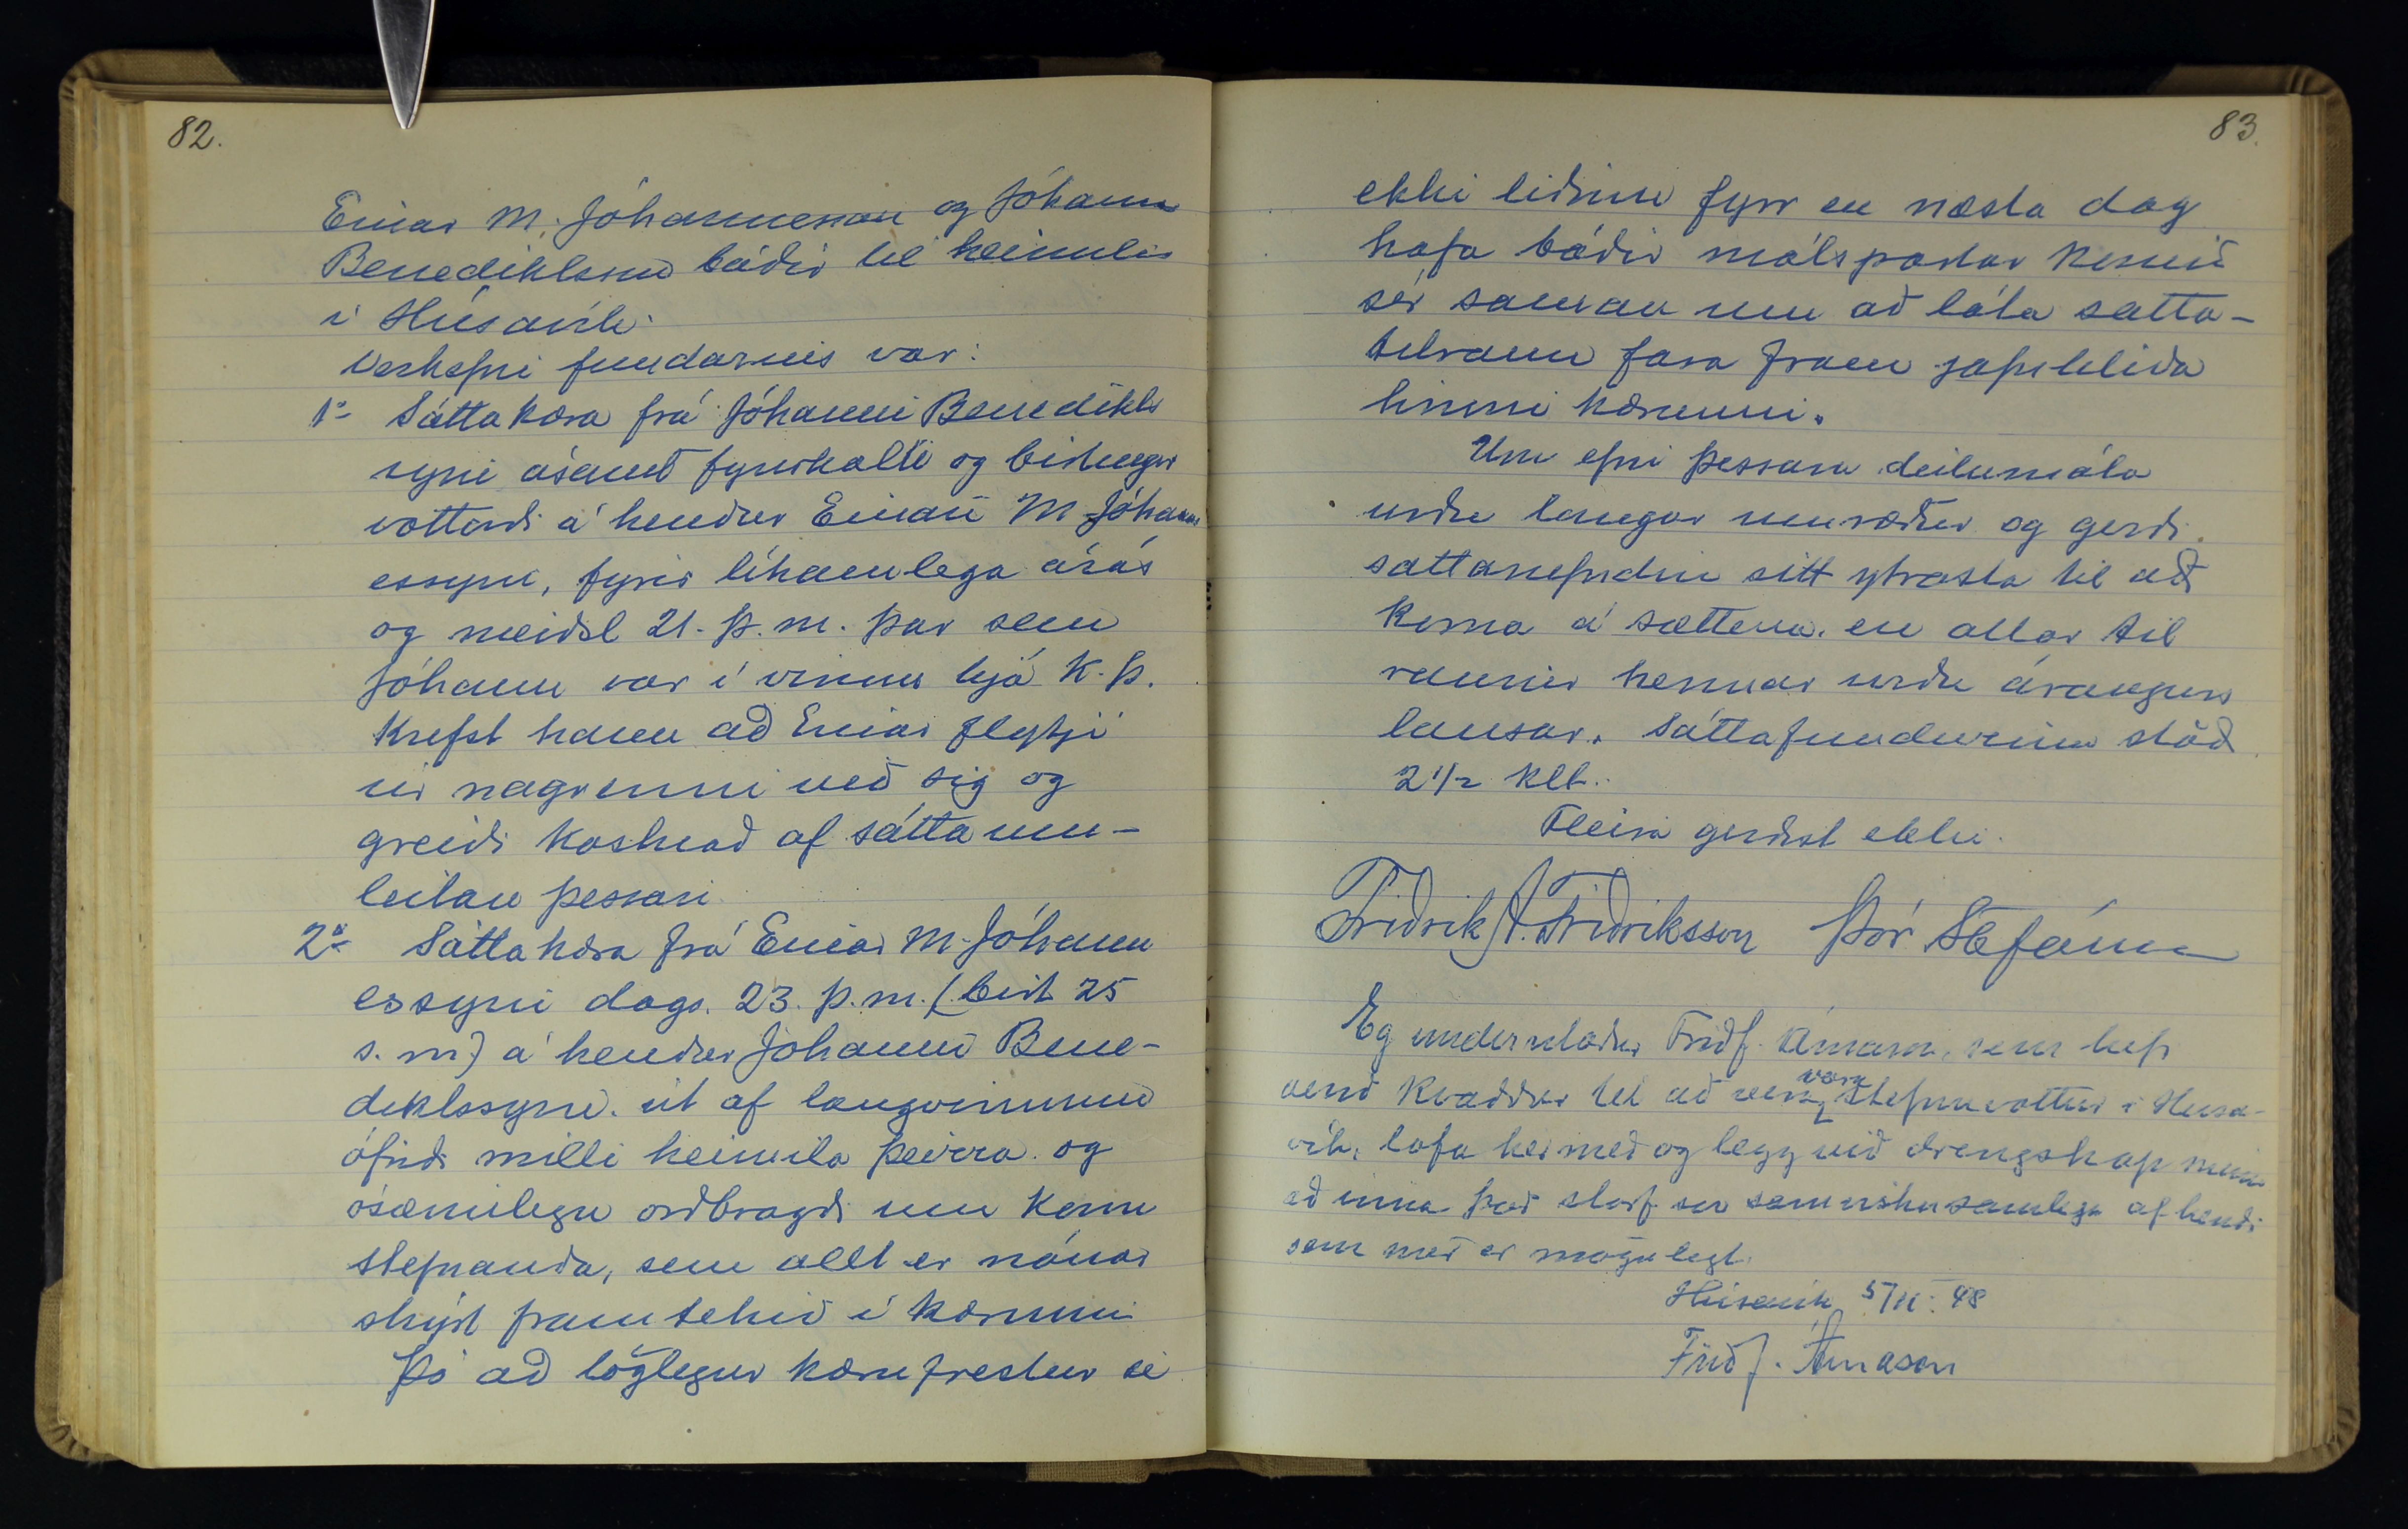 82.
Einar M. Jóhannesson og Jóhann
Benediktsson báðir til heimilis
í Húsavík.
Verkefni fundarins var:
1o Sáttakæra frá Jóhanni Benedikts
syni ásamt fyrirkalli og birtingar
vottorði á hendur Einari M. Jóhann
essyni, fyrir líkamlega árás
og meiðsl 21. þ.m. þar sem
Jóhann var í vinnu hjá K.Þ.
Krefst hann að Einar flytji
úr nágrenni við sig og
greiði kostnað af sáttaum-
leitan þessari
2o Sáttakæra frá Einar M. Jóhann
essyni dags. 23. þ.m. (birt 25
s.m) á hendur Jóhanni Bene-
diktssyni. út af langvinnum
ófriði milli heimila þeirra og
ósæmilegu orðbragði um konu
stefnanda, sem allt er nánar
skýrt framtekið í kærunni
Þó að löglegur kærufrestur sé
83.
ekki liðinn fyrr en næsta dag
hafa báðir málspartar komið
sér saman um að láta sátta-
tilraun fara fram jafnhliða
hinni kærunni.
Um efni þessara deilumála
urðu langar umræður og gerði
sáttanefndin sitt ýtrasta til að
koma á sættum. en allar til
raunir hennar urðu árangurs
lausar. Sáttafundurinn stóð
2 1/2 klt.
Fleira gerðist ekki.
Friðrik A. Friðriksson Þór Stefánss
Eg undirritaður Friðf. Árnason, sem hefi
verið kvaddur til að vera vara stefnuvottur í Húsa-
vík, lofa hér með og legg við drengskap minn
að inna það starf svo samviskusamlega af hendi
sem mér er mögulegt.
Húsavík 5/11. 48
Friðf. Árnason